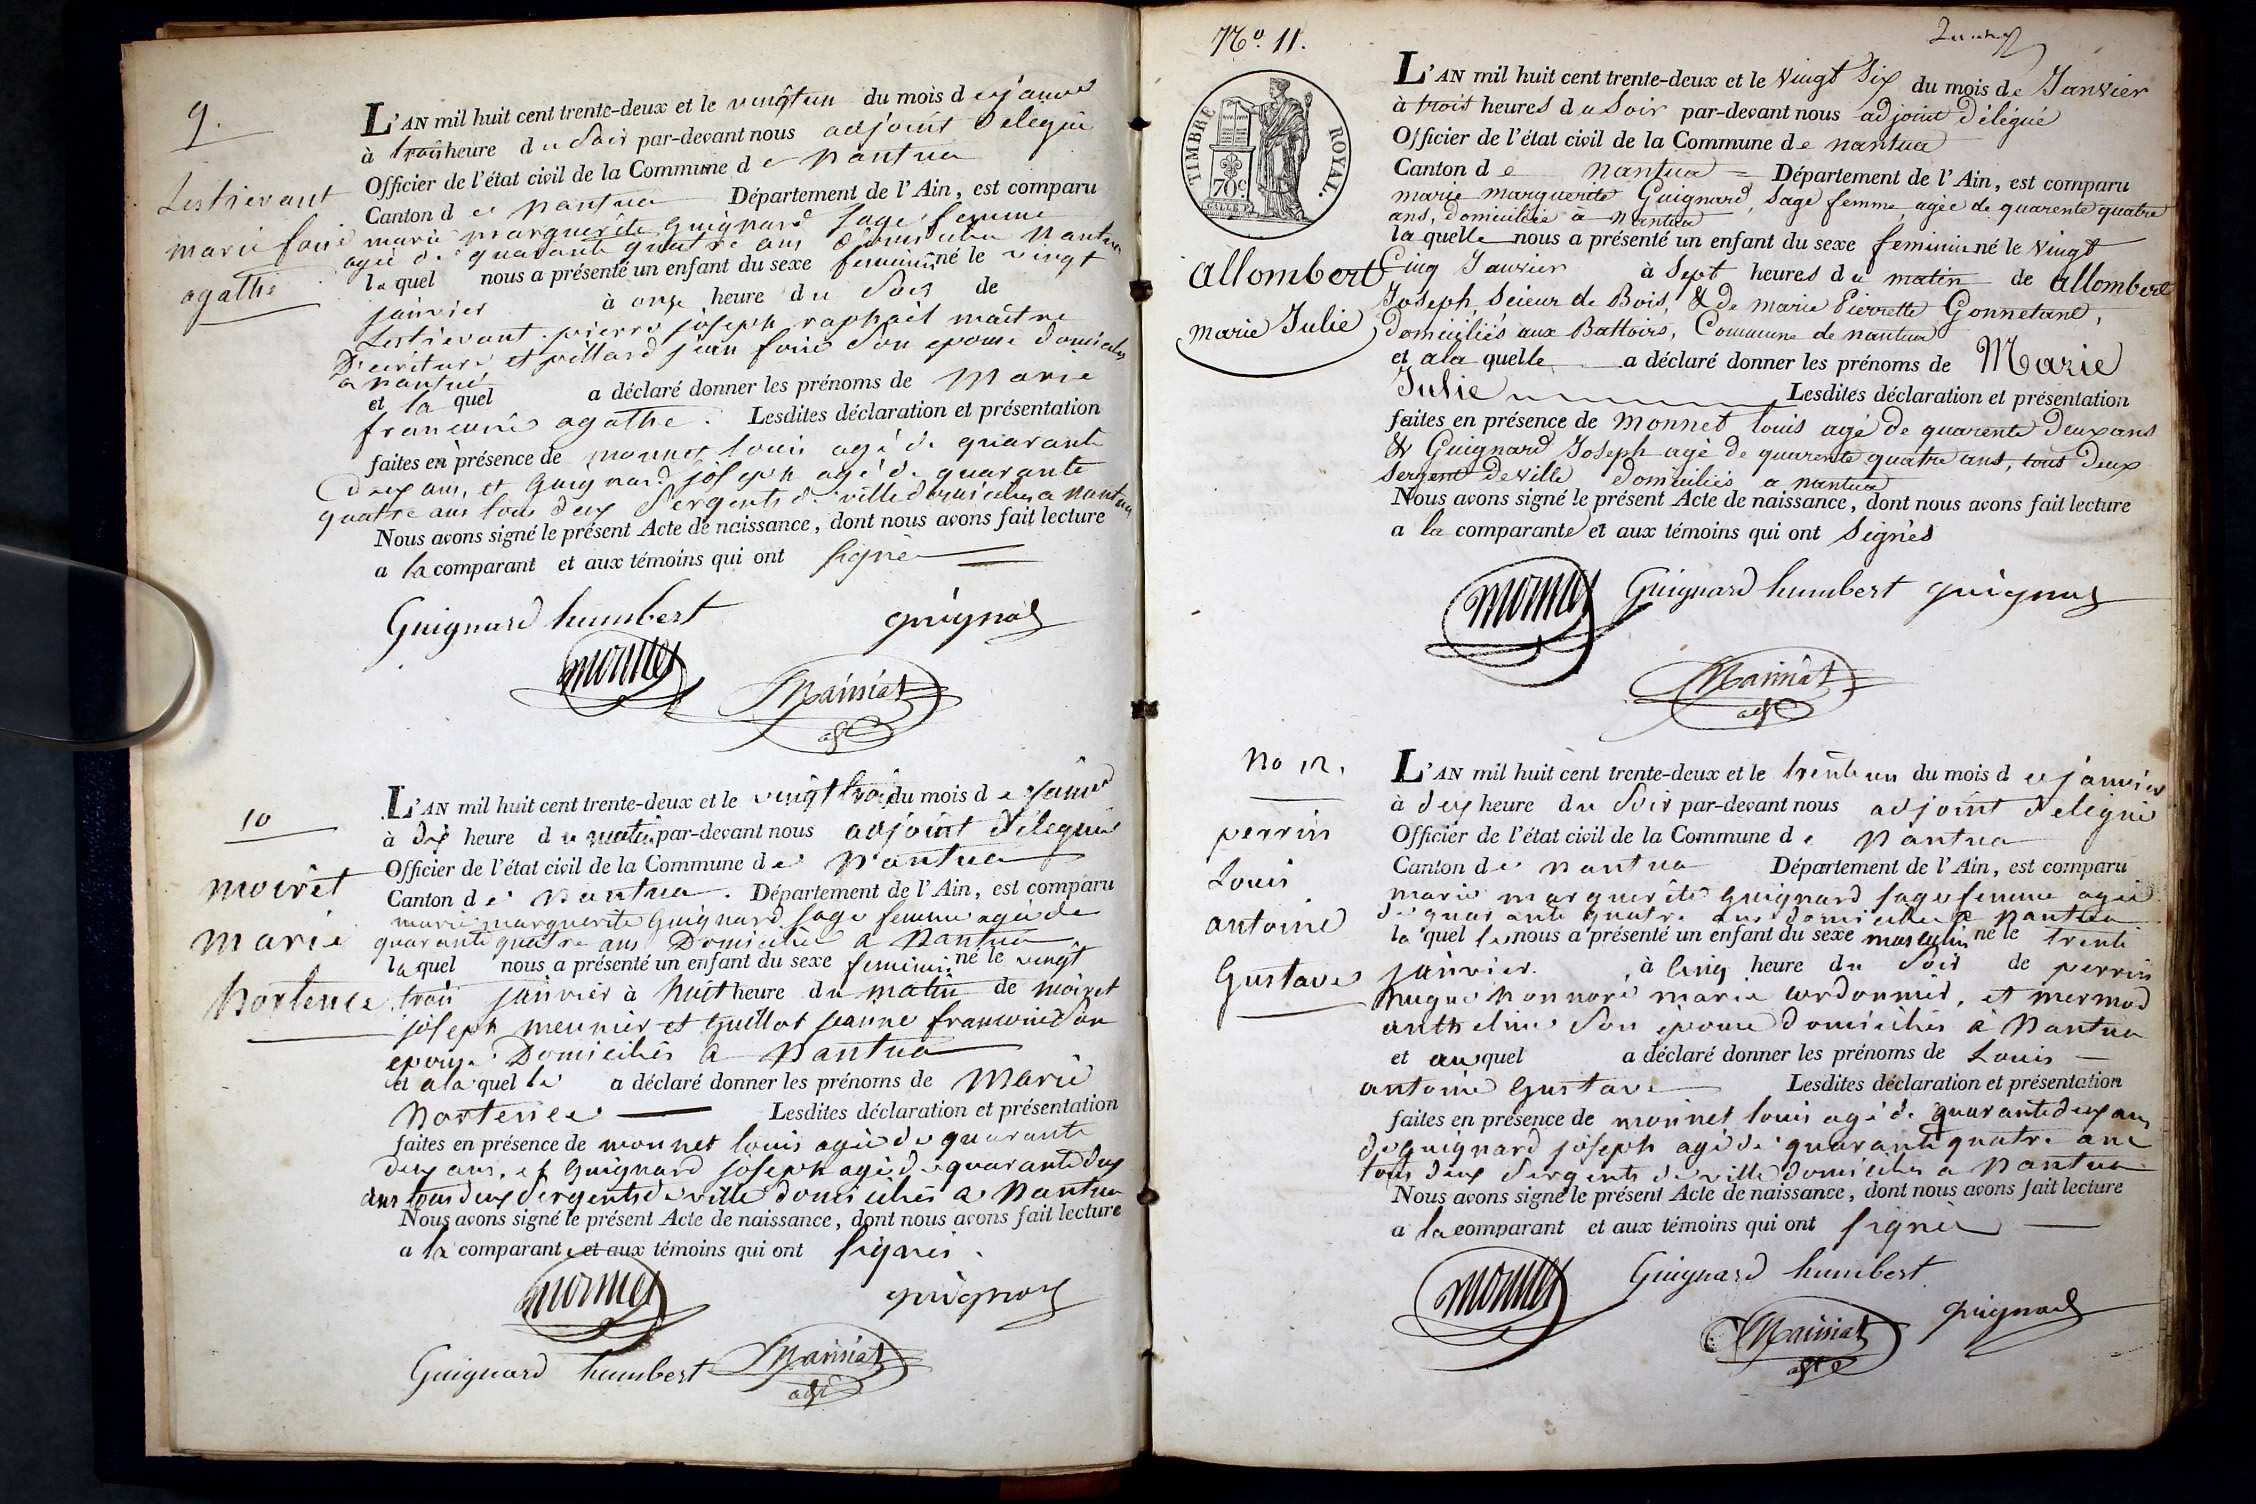 9.
Lestrievant
marie foni
agathe
L'AN mil huit cent trente-deux et le vingtun du mois de janvier
à trois heure du Soir par-devant nous adjoint delegué
Officier de l'état civil de la Commune de nantua
Canton de nantua Département de l'Ain, est comparu
marie marguerite guignard sage femme
agée de quarante quatre ans domiciliée nantua
la quel nous a présenté un enfant du sexe feminin né le vingt
janvier à onze heure du Soir de
Lestrievant pierre joseph raphaël maitre
D'ecriture et villard jean foni Son epouse domicilies
a nantua
et la quel a déclaré donner les prénoms de Marie
francoise agathe. Lesdites déclaration et présentation
faites en présence de monnet louis agé de quarante
deux ans, et guignard joseph agé de quarante
quatre ans tous deux Sergents de ville domicilies a nantua
Nous avons signé le présent Acte de naissance, dont nous avons fait lecture
a la comparant et aux témoins qui ont signé
Guignard humbert guignard
monnet Mainiat
adjt
10
moiret
marie
hortence
L'AN mil huit cent trente-deux et le vingt trois du mois de janvier
à dix heure du matin par-devant nous adjoint delegué
Officier de l'état civil de la Commune de Nantua
Canton de Nantua. Département de l'Ain, est comparu
marie marguerite guignard sage femme agée de
quarante quatre ans Domiciliée a Nantua
la quel nous a présenté un enfant du sexe feminin né le vingt
trois janvier à huit heure du matin de moiret
joseph meunier et guillot jeanne francoise son
epouse Domicilies a Nantua
et a la quel le a déclaré donner les prénoms de Marie
hortence Lesdites déclaration et présentation
faites en présence de monnet louis agé de quarante
deux ans, et guignard joseph agé de quarante deux
ans tous deux Sergents de ville domiciliés a Nantua
Nous avons signé le présent Acte de naissance, dont nous avons fait lecture
a la comparante et aux témoins qui ont signés.
monnet guignard
Guignard humbert Mainiat
adjt
No. 11.
TIMBRE ROYAL.
70c.
allombert
marie Julie
L'AN mil huit cent trente-deux et le Vingt Six du mois de Janvier
à trois heures du Soir par-devant nous adjoint délégué
Officier de l'état civil de la Commune de nantua
Canton de nantua Département de l'Ain, est comparu
marie marguerite Guignard, Sage femme agée de quarente quatre
ans, domiciliée a nantua
la quelle nous a présenté un enfant du sexe feminin né le Vingt
Cinq Janvier à Sept heures du matin de allombert
Joseph, Scieur de Bois, & de marie Pierrette Gonnetant,
domiciliés aux Battoirs, Commune de nantua
et a la quelle a déclaré donner les prénoms de Marie
Julie Lesdites déclaration et présentation
faites en présence de monnet louis agé de quarente deux ans
& Guignard Joseph agé de quarente quatre ans, tous deux
Sergent de ville domiciliés a nantua
Nous avons signé le présent Acte de naissance, dont nous avons fait lecture
a la comparante et aux témoins qui ont Signés
monnet Guignard humbert guignard
Mainiat
adjt
No 12.
perrin
Louis
antoine
Gustave
L'AN mil huit cent trente-deux et le trente un du mois de janvier
à deux heure du Soir par-devant nous adjoint delegué
Officier de l'état civil de la Commune de Nantua
Canton de Nantua Département de l'Ain, est comparu
marie marguerite guignard sage femme agée
de quarante quatre ans domiciliée a Nantua
la quel le nous a présenté un enfant du sexe masculin né le trente
janvier. à cinq heure du Soir de perrin
hugue honnoré marie cordonnier, et mermod
anthelme Son epouse domiciliés a Nantua
et auquel a déclaré donner les prénoms de Louis
antoine Gustave Lesdites déclaration et présentation
faites en présence de monnet louis agé de quarante deux ans
de guignard joseph agé de quarante quatre ans
tous deux Sergents de ville domicilies a Nantua
Nous avons signé le présent Acte de naissance, dont nous avons fait lecture
a la comparant et aux témoins qui ont signés
monnet Guignard humbert
Mainiat guignard
adjt